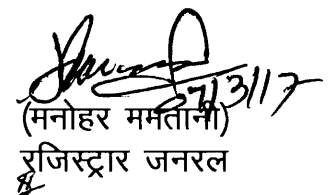 07/3/17
(मनोहर ममतानी)
रजिस्ट्रार जनरल